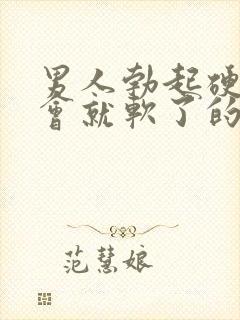 男人勃起硬
會就軟了的
范慧娘